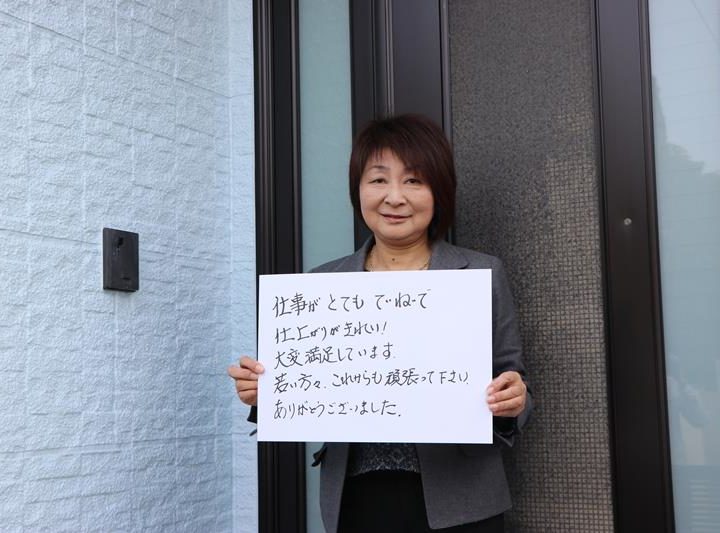 仕事がとてもでいねーで
仕上がりが きれい!
大変満足しています.
若い方々、これからも頑張って下さい.
ありがとうございました.